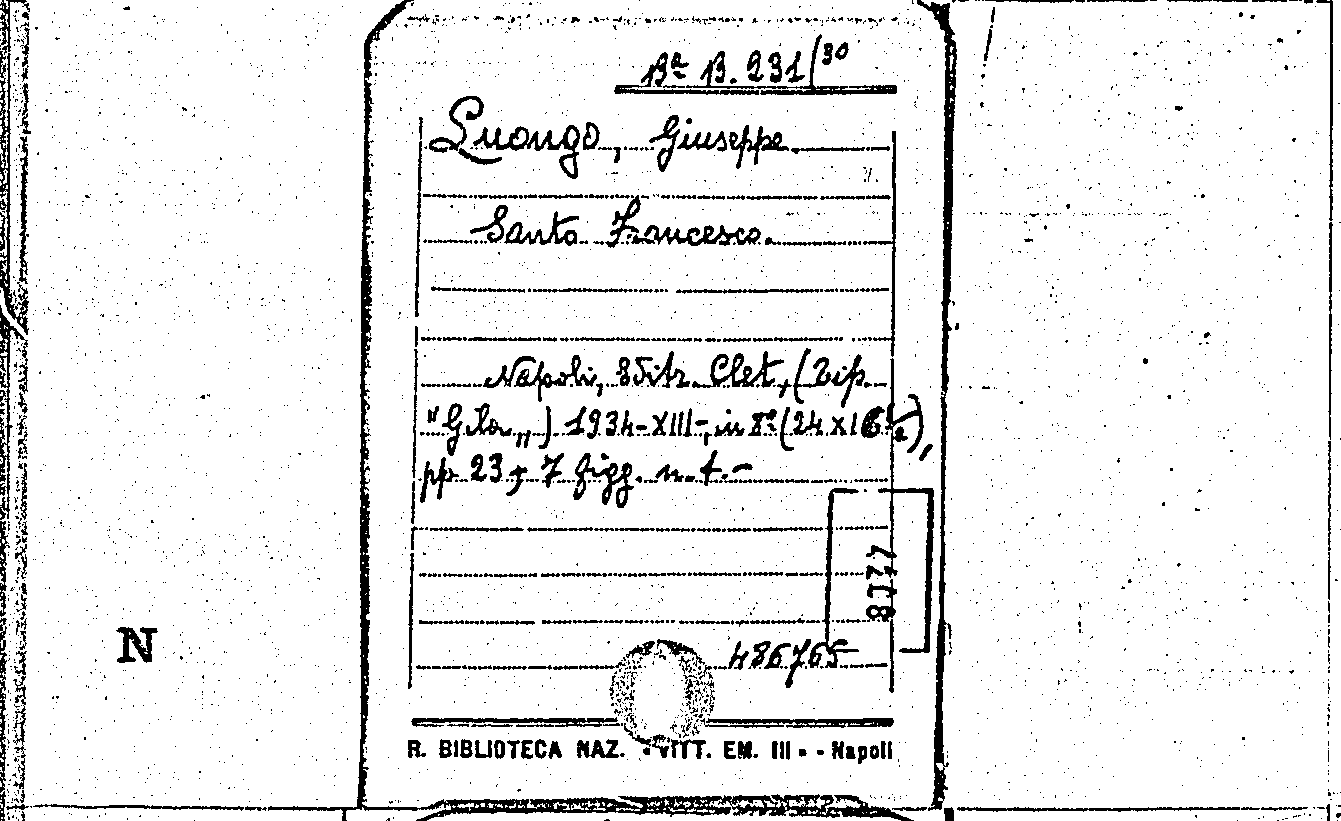 Bª B. 231/30
Luongo, Giuseppe.
Santo Francesco.
Napoli, Editr. Clet, (Tip.
"Gila„) 1934-XIII-, in 8º (24 x 16 1/2),
pp. 23, 7 figg. n. t. -
4208
486765
N
R. BIBLIOTECA NAZ. - VITT. EM. III - - Napoli